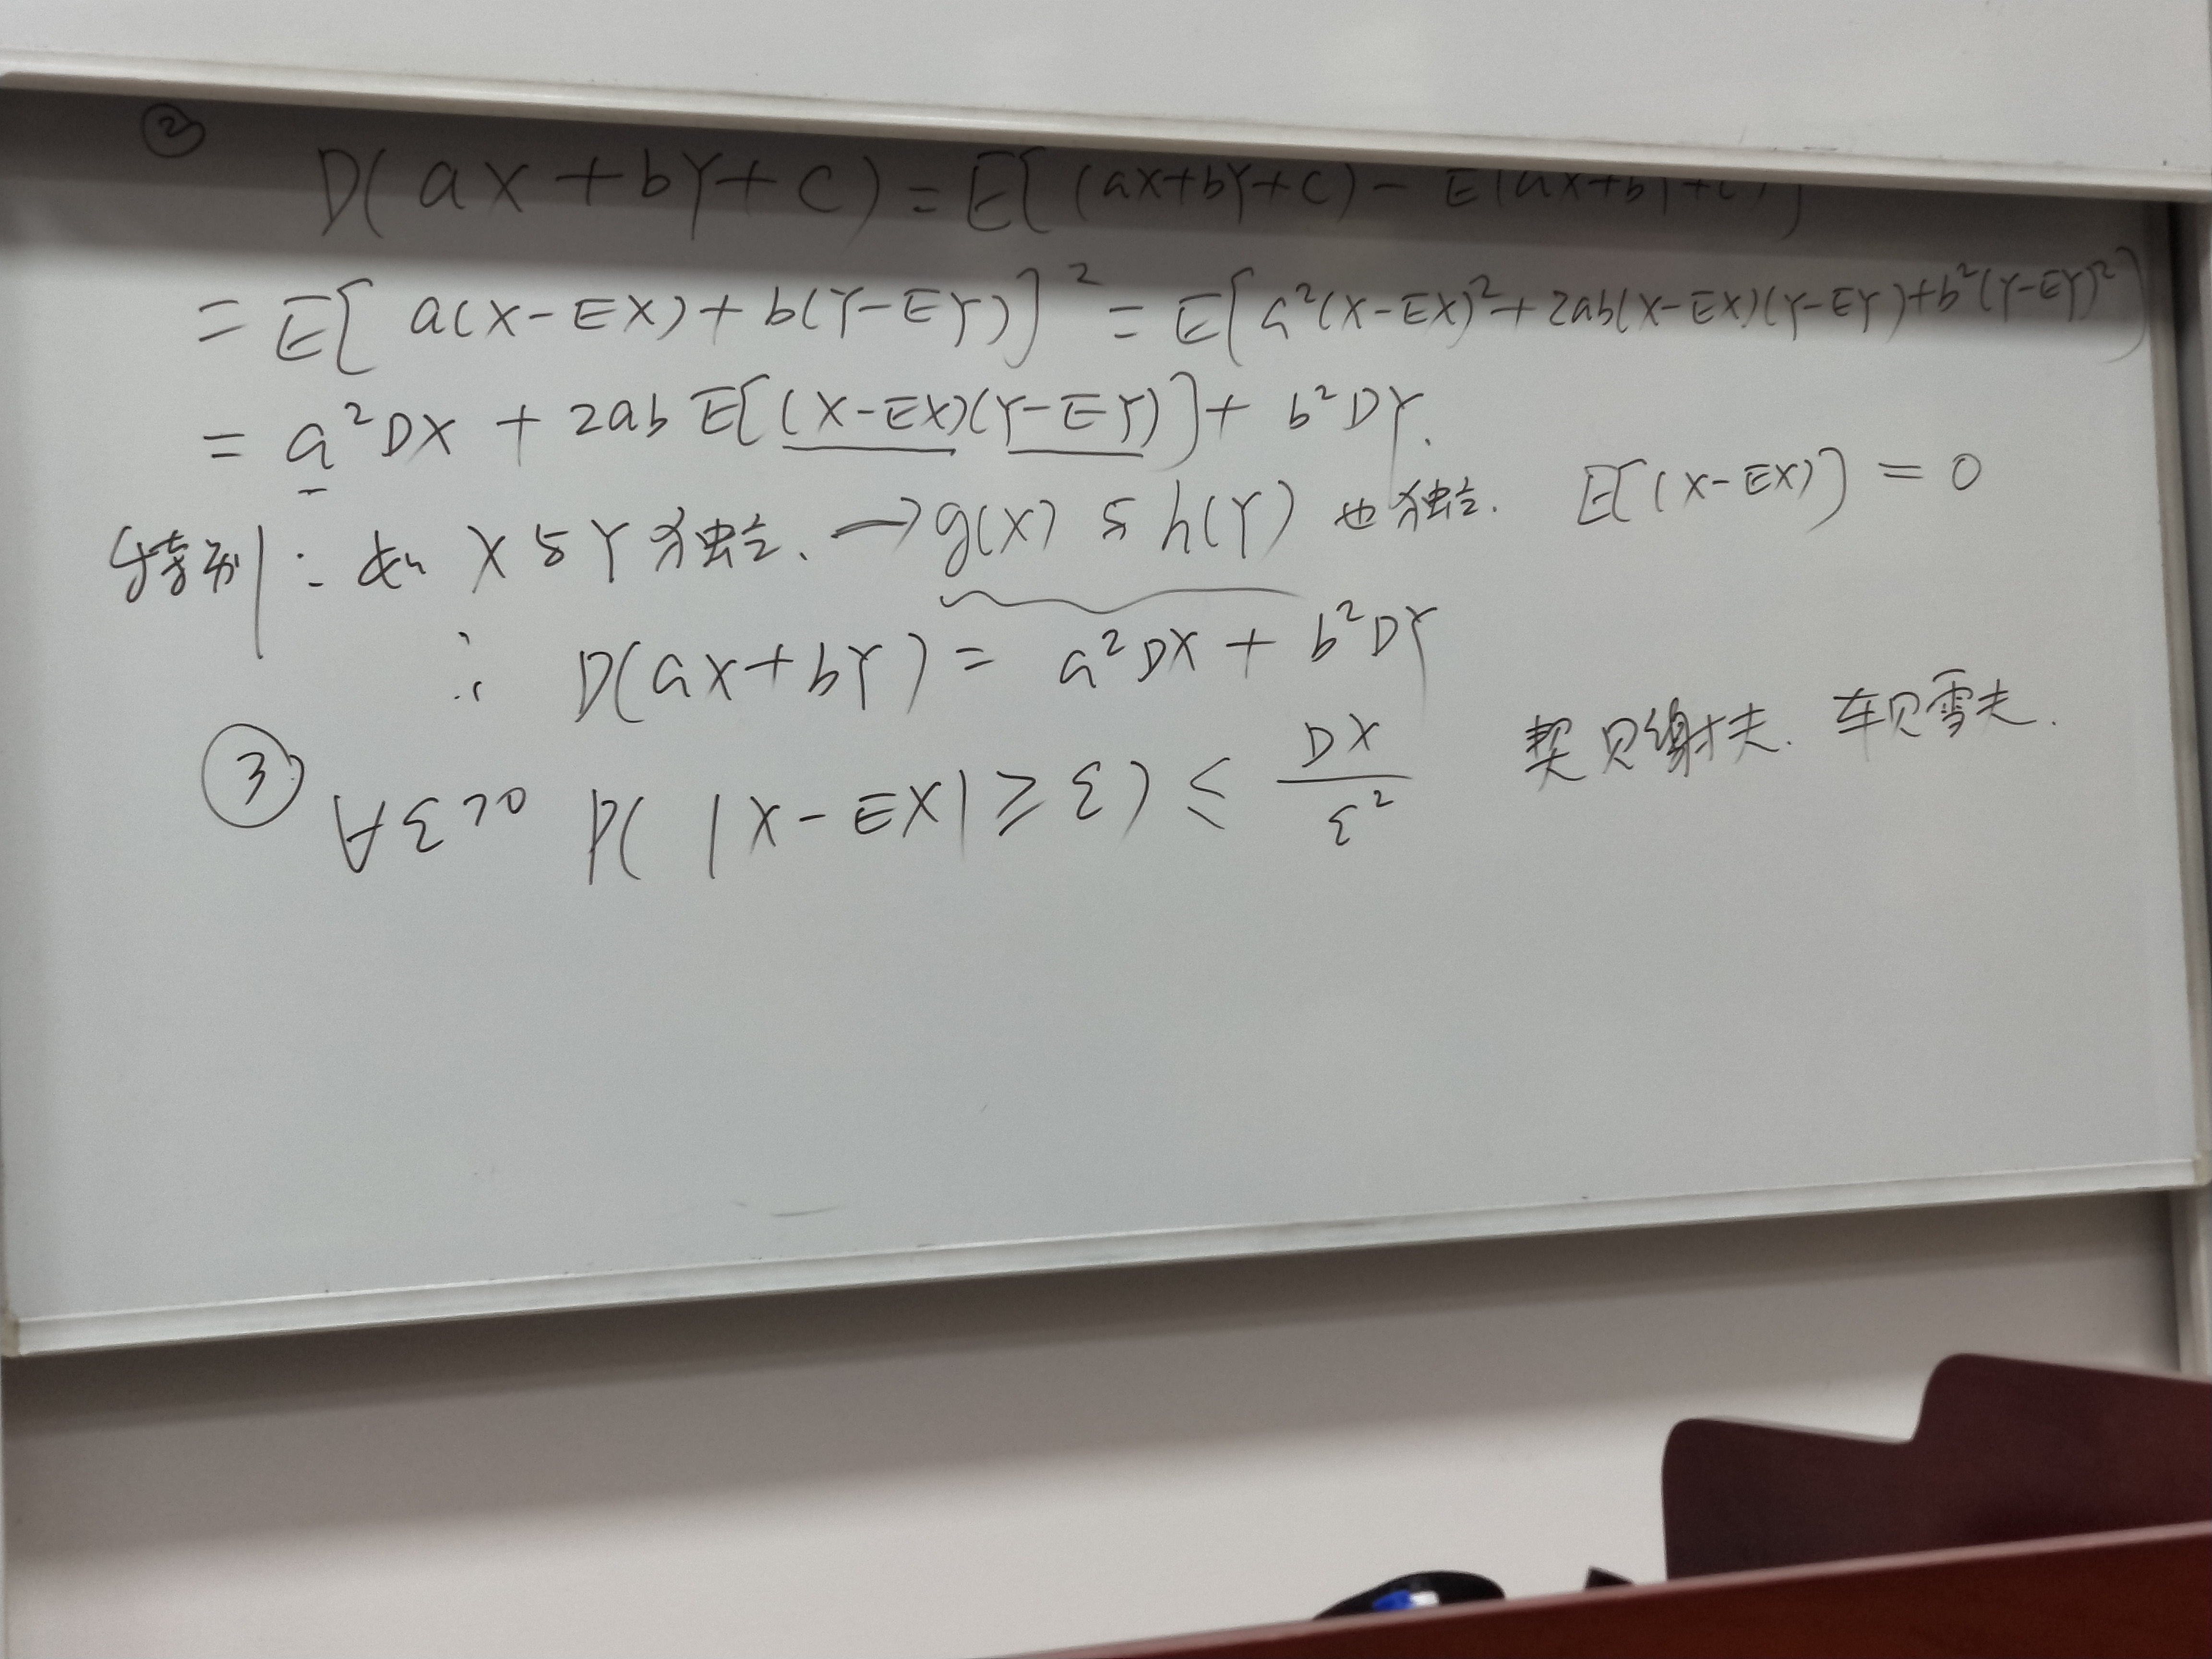 ② D(aX+bY+C)=E[(aX+bY+C)-E(aX+bY+C)]
=E[a(X-EX)+b(Y-EY)]²=E[a²(X-EX)²+2ab(X-EX)(Y-EY)+b²(Y-EY)²]
=a²DX+2abE[(X-EX)(Y-EY)]+b²DY.
特别:如X与Y独立.→g(X)与h(Y)也独立. E[(X-EX)]=0
∴ D(aX+bY)=a²DX+b²DY
③ ∀ε>0 P(|X-EX|≥ε)≤DX/ε² 契贝谢夫.车贝雪夫.